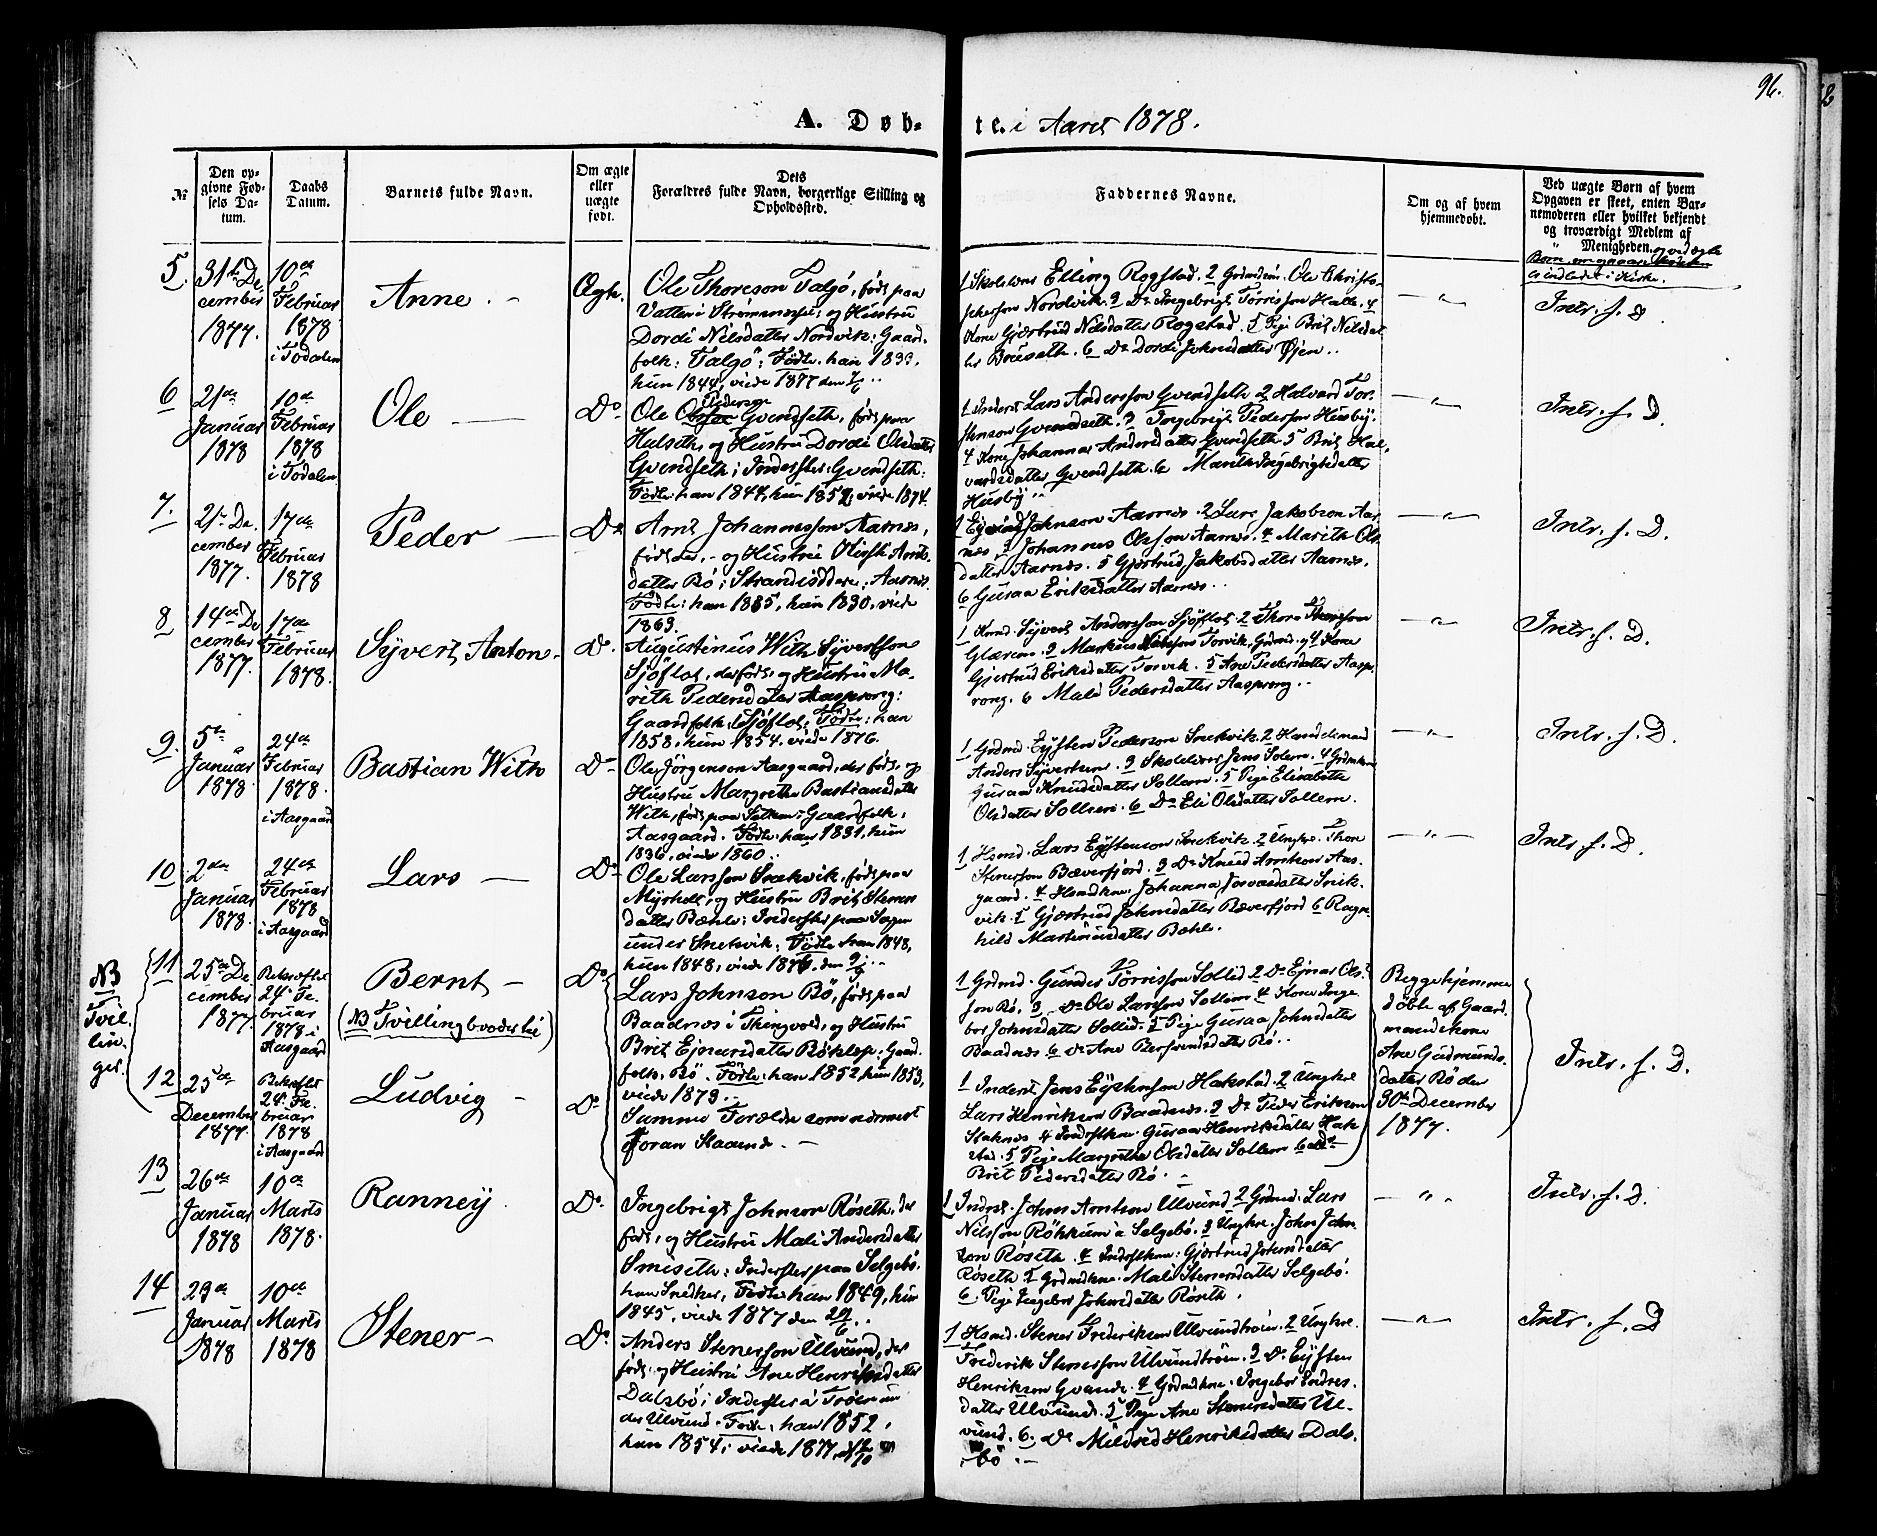 96.
A. Døb-
te. i Aaret 1878.
№
Den op-
givne Fød-
sels Da-
tum.
Daabs
Datum.
Barnets fulde Navn.
Om ægte
eller
uægte
født.
Dets
Forældres fulde Navn, borgerlige Stilling og
Opholdssted.
Faddernes Navne.
Om og af hvem
hjemmedøbt.
Ved uægte Børn af hvem
Opgaven er skeet, enten Bar-
nemoderen eller hvilket bekjendt
og troværdigt Medlem af
Menigheden.
5.
31te De
cember
1877.
10de
Februar
1878
i Todalen
Anne. -
Ægte.
Ole Thoreson Talgø, født paa
Vatten i Strømsnæss, og Hustru
Dordi Nilsdatter Nordvik: Gaard-
folk: Talgø; Fødte: han 1833,
hun 1844, viede 1877 den
1 Skolelæres Elling Rogstad. 2 Grdmdsøn. Ole Christo-
phersøn Nordvik. 3 Do Ingebrigt Torrisson Halle. 4
Kone Gjertrud Nilsdatter Rogstad. 5 Pige Brit Nilsdat-
ter Bruseth. 6 Do Dordi Johnsdatter Øjen..
Intr. f. D
6
21de
Januar
1878
10de
Februar
1878
i Todalen
Ole
Do
Ole Pedersøn Gvendseth, født paa
Halseth, og Hustru Dordi Olsdatter
Gvendseth; Inderster: Gvendseth:
Fødte: han 1844, hun 1852, viede 1874.
1 Inderst Lars Andersson Gvendseth 2 Halvard Tor-
stenson Gvendseth. 3 Ingebrigt Pederson Husby.
4 Kone Johanna Andersdatter Gvendseth 5 Brit Hal-
vardsdatter Gvendseth. 6 Marith Ingebrigtsdatter
Husby
Intr. f. D.
7.
21de De-
cember
1877.
17de
Februar
1878
Peder
Do
Arnt Johannesson Aarnes,
født der, og Hustru Arnts-
datter Bø; Strandsiddere: Aarnes.
Fødte: han 1835, hun 1830, viede
1863.
1 Johnson Aarnes. 2 Lars Jakobson Aar-
nes, 3 Johannes Olsson Aarnes. 4 Marith Ols-
datter Aarnes. 5 Gjertrud Jakobsdatter Aarnes.
6 Guraa Eriksdatter Aarnes..
Intr. f. D.
8
14de De
cember
1877.
17de
Februar
1878.
Syvert Anton
Do
Augustinus With Syvertson
Sjøflot, der født, og Hustru Ma-
rith Pedersdatter Aasprong:
Gaardfolk, Sjøflot; Fødte: han
1858, hun 1854, viede 1876.
1 Syvert Andersson Sjøflot 2 Thore Thoresson
Glærem. 3 Markus Nilsson Torvik, Grdmd. og 4 Kone
Gjertrud Eriksdatter Torvik. 5 Ane Pedersdatter Aasp-
rong. 6 Mali Pedersdatter Aasprong..
Intr. f. D.
9.
5te
Januar
1878.
24de
Februar
1878.
i Aasgaard
Bastian With
Do
Ole Jørgenson Aasgaard, der født, og
Hustru Margrethe Bastiansdatter
With, født paa Gaardfolk,
Aasgaard. Fødte: han 1831, hun
1836, viede 1860.
1 Grdmd. Eysten Pederson Snekvik. 2 Handelsmand
Anders Syvertsen. 3 Skolelærer Jens Solem. 4 Grdmkone
Guraa Knudsdatter Sollem. 5 Pige Elisabeth
Olsdatter Sollem. 6 Do Eli Olsdatter Sollem.
Intr. f. D.
10
2den
Januar
1878.
24de
Februar
1878
i Aasgaard
Lars
Do
Ole Larsson Snekvik, født paa
Myrholt, og Hustru Brit Steners-
datter Bæhle: Inderster paa Sagen
under Snekvik: Fødte: han 1848,
hun 1848, viede 1876, den
1 Hsmd. Lars Eystenson Snekvik. 2 Ungkr. Thore
Bæverfjord. 3 Do Knud Arntson Aas-
gaard. 4 Hsmdkne. Johanna Jonasdatter Snek-
vik. 5 Gjertrud Johnsdatter Bæverfjord 6 Ragn-
hild Martinusdatter Bæhle.
Intr. f. D.
NB
Tvil-
lin-
ger.
11
25de De
cember
1877
Bekræftet
24de Fe-
bruar
1878 i
Aasgaard
Bernt
(NB Tvillingbrødertil)
Do
Lars Johnson Bø, født paa
Baadnæs i Thingvold, og Hustru
Brit Ejnarsdatter Røklep: Gaard-
folk, Bø. Fødte: han 1852, hun 1853,
viede 1873..
1 Grdmd. Gunder Torrisson Sollid 2 Do Ejnar Ols-
son Bø. 3 Do Ole Larsson Sollem 4 Kone Inge-
bor Johnsdatter Sollid. 5 Pige Guraa Johnsdatter
Baadnæs 6 Do Ane Bersvendsdatter Bø..
Begge hjemme
døbte af Gaard
mandskone
Ane Gudmunds-
datter Bø den
30te December
1877.
Intr. f. D.
12
25de
December
1877.
Bekræftet
24de Fe-
bruar
1878
i Aasgaard
Ludvig
Do
Samme Forældre som nærmest
foran Staaende.
1 Inderst Jens Eystenson Hakstad. 2 Ungkrl
Lars Henrikson Baadnæs. 3 Do Peder Erikson
Staknes 4 Indstkne. Guraa Henriksdatter Hak-
stad. 5 Pige Margrethe Olsdatter Sollem 6 Do
Brit Pedersdatter Bø.
13
26de
Januar
1878
10de
Marts
1878.
Ranney
Do
Ingebrigt Johnson Røseth, der
født, og Hustru Mali Andersdatter
Smiseth: Inderster paa Selgebø.
han Snedker, Fødte han 1849, hun
1845, viede 1877 den 24/6..
1 Inderst. John Arntson Ulvund 2 Grdmd. Lars
Nilsson Røkkum à Selgebø. 3 Ungkr. John John-
son Røseth. 4 Indstkne: Gjertrud Johnsdatter
Røseth 5 Grdmdkne. Mali Stenersdatter Selgebø.
6. Pige Ingebor Johnsdatter Røseth.
Intr. f. D.
14
29de
Januar
1878
10de
Marts
1878
Stener
Do
Anders Stenersson Ulvund, der
født, og Hustru Ane Henriksdatter
Dalsbø; Inderster à Trøen un-
der Ulvund. Fødte: han 1852,
hun 1854, viede 1877
1 Hsmd. Stener Frederiksen Ulvundtrøen. 2 Ungkr.
Frederik Stenersson Ulvundtrøen. 3 Do Eysten
Henrikson Gvande. 4 Grdmdkne. Ingebor Endres-
datter Ulvund. 5 Pige Ane Stenersdatter Ul-
vund. 6. Do Mildrid Henriksdatter Dals-
bø.
Intr. f. D